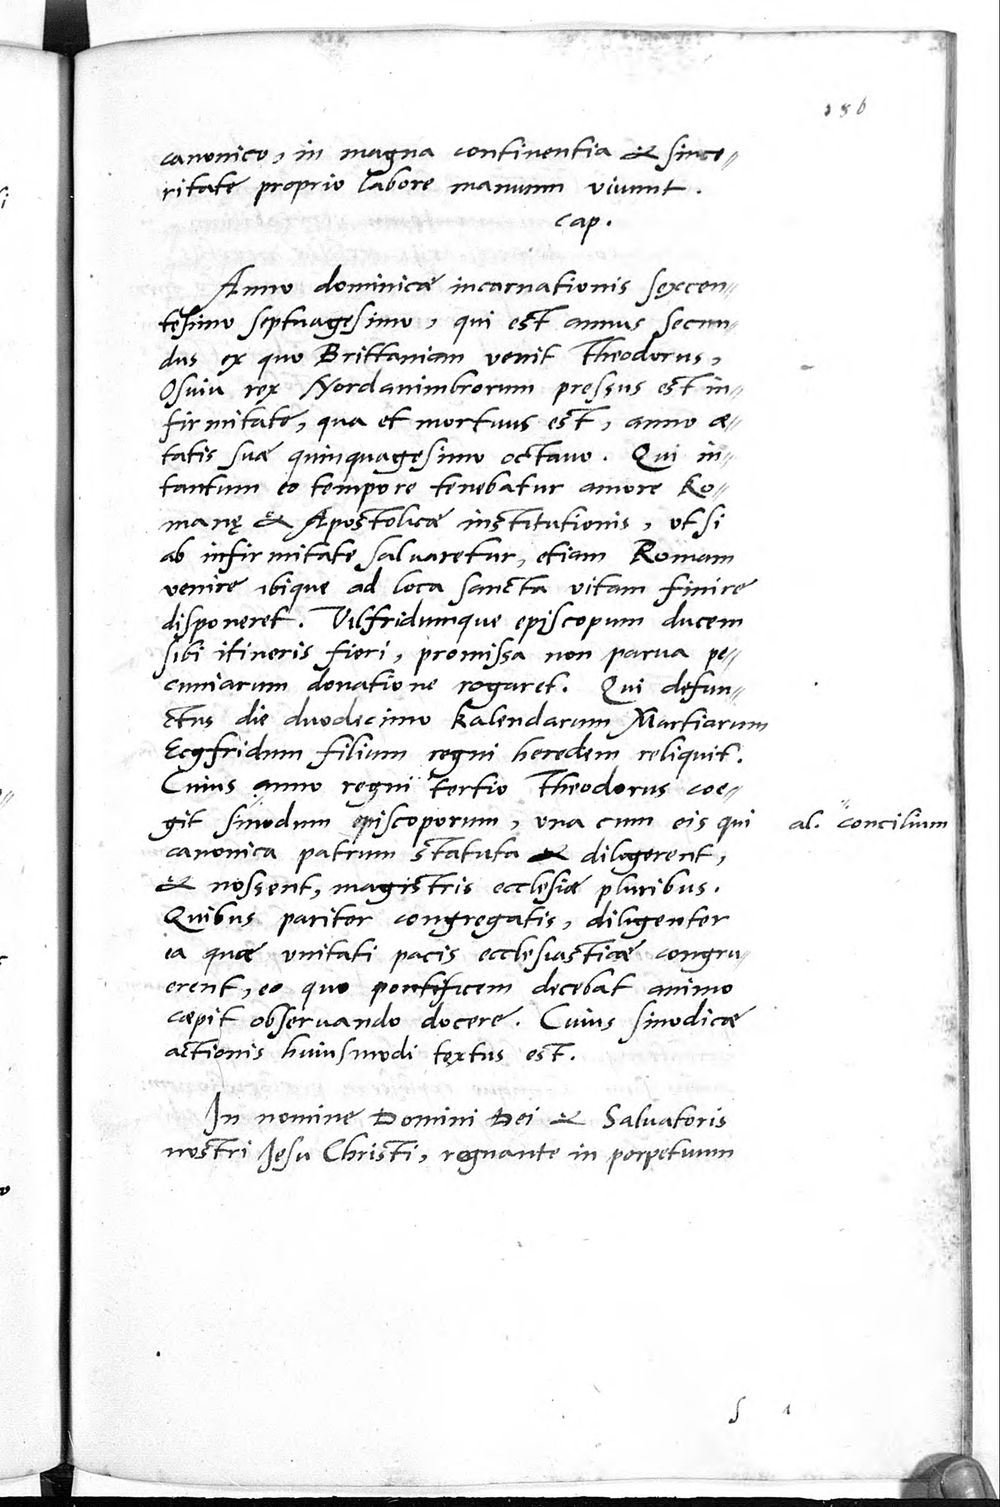 136
canonico, in magna continentia & since〃
ritate proprio labore manuum viuunt.
cap.
Anno dominicæ incarnationis sexcen〃
tesimo septuagesimo, qui est annus secun〃
dus ex quo Brittaniam venit Theodorus,
Osuiu rex Nordanimbrorum pressus est in〃
firmitate, qua et mortuus est, anno æ〃
tatis suæ quinquagesimo octauo. Qui in〃
tantum eo tempore tenebatur amore Ro〃
manę & Apostolicæ institutionis, vt si
ab infirmitate saluaretur, etiam Romam
venire ibique ad loca sancta vitam finire
disponeret. Vilfridumque episcopum ducem
sibi itineris fieri, promissa non parua pe〃
cuniarum donatione rogaret. Qui defun〃
ctus die duodecimo kalendarum Martiarum
Ecgfridum filium regni heredem reliquit.
Cuius anno regni tertio Theodorus coe〃
git sinodum episcoporum, vna cum eis qui
al. concilium
canonica patrum statuta & diligerent,
& nossent, magistris ecclesiæ pluribus.
Quibus pariter congregatis, diligenter
ea quæ vnitati pacis ecclesiasticæ congru〃
erent, eo quo pontificem decebat animo
cæpit obseruando docere. Cuius sinodicæ
actionis huiusmodi textus est.
In nomine Domini Dei & Saluatoris
nostri Jesu Christi, regnante in perpetuum
S 1